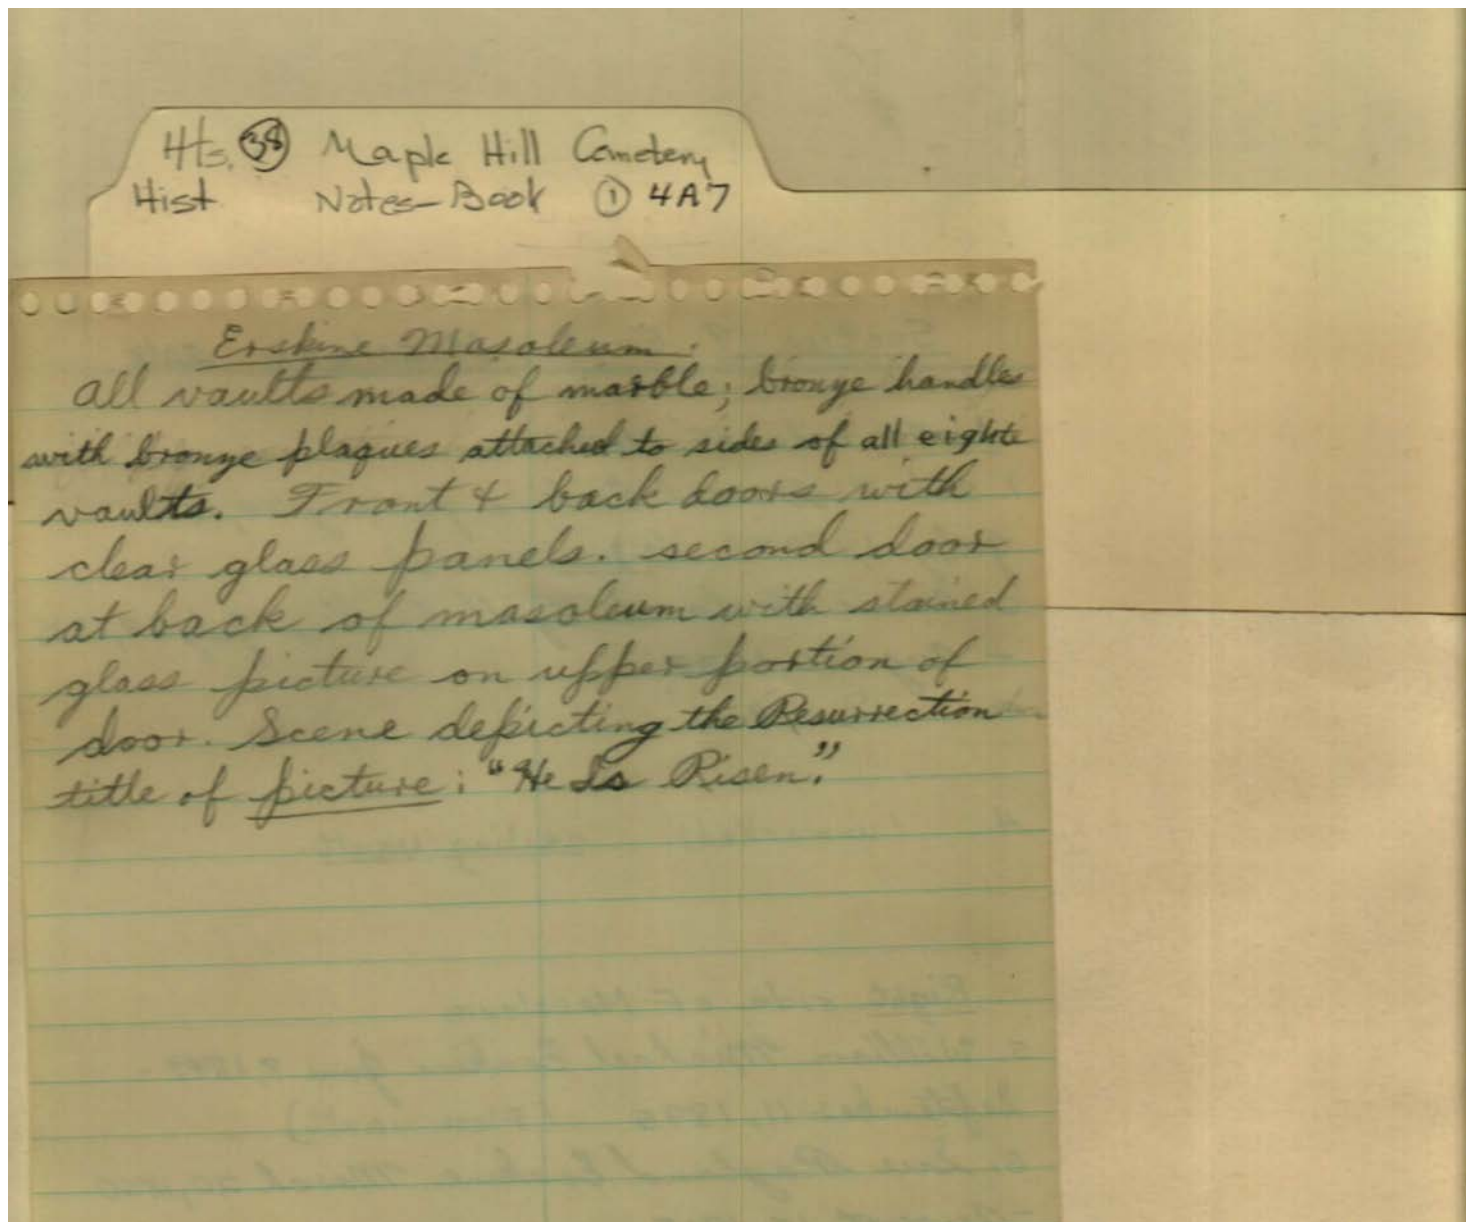 Hts. 38 Maple Hill Cemetery
Hist Notes-Book 1 4A7
Erskine Masoleum.
All vaults made of marble; bronze handles
with bronze plaques attached to sides of all eight
vaults. Front & back doors with
clear glass panels. second door
at back of masoleum with stained
glass picture on upper portion of
door. Scene depicting the Resurrection
title of picture: "He Is Risen."